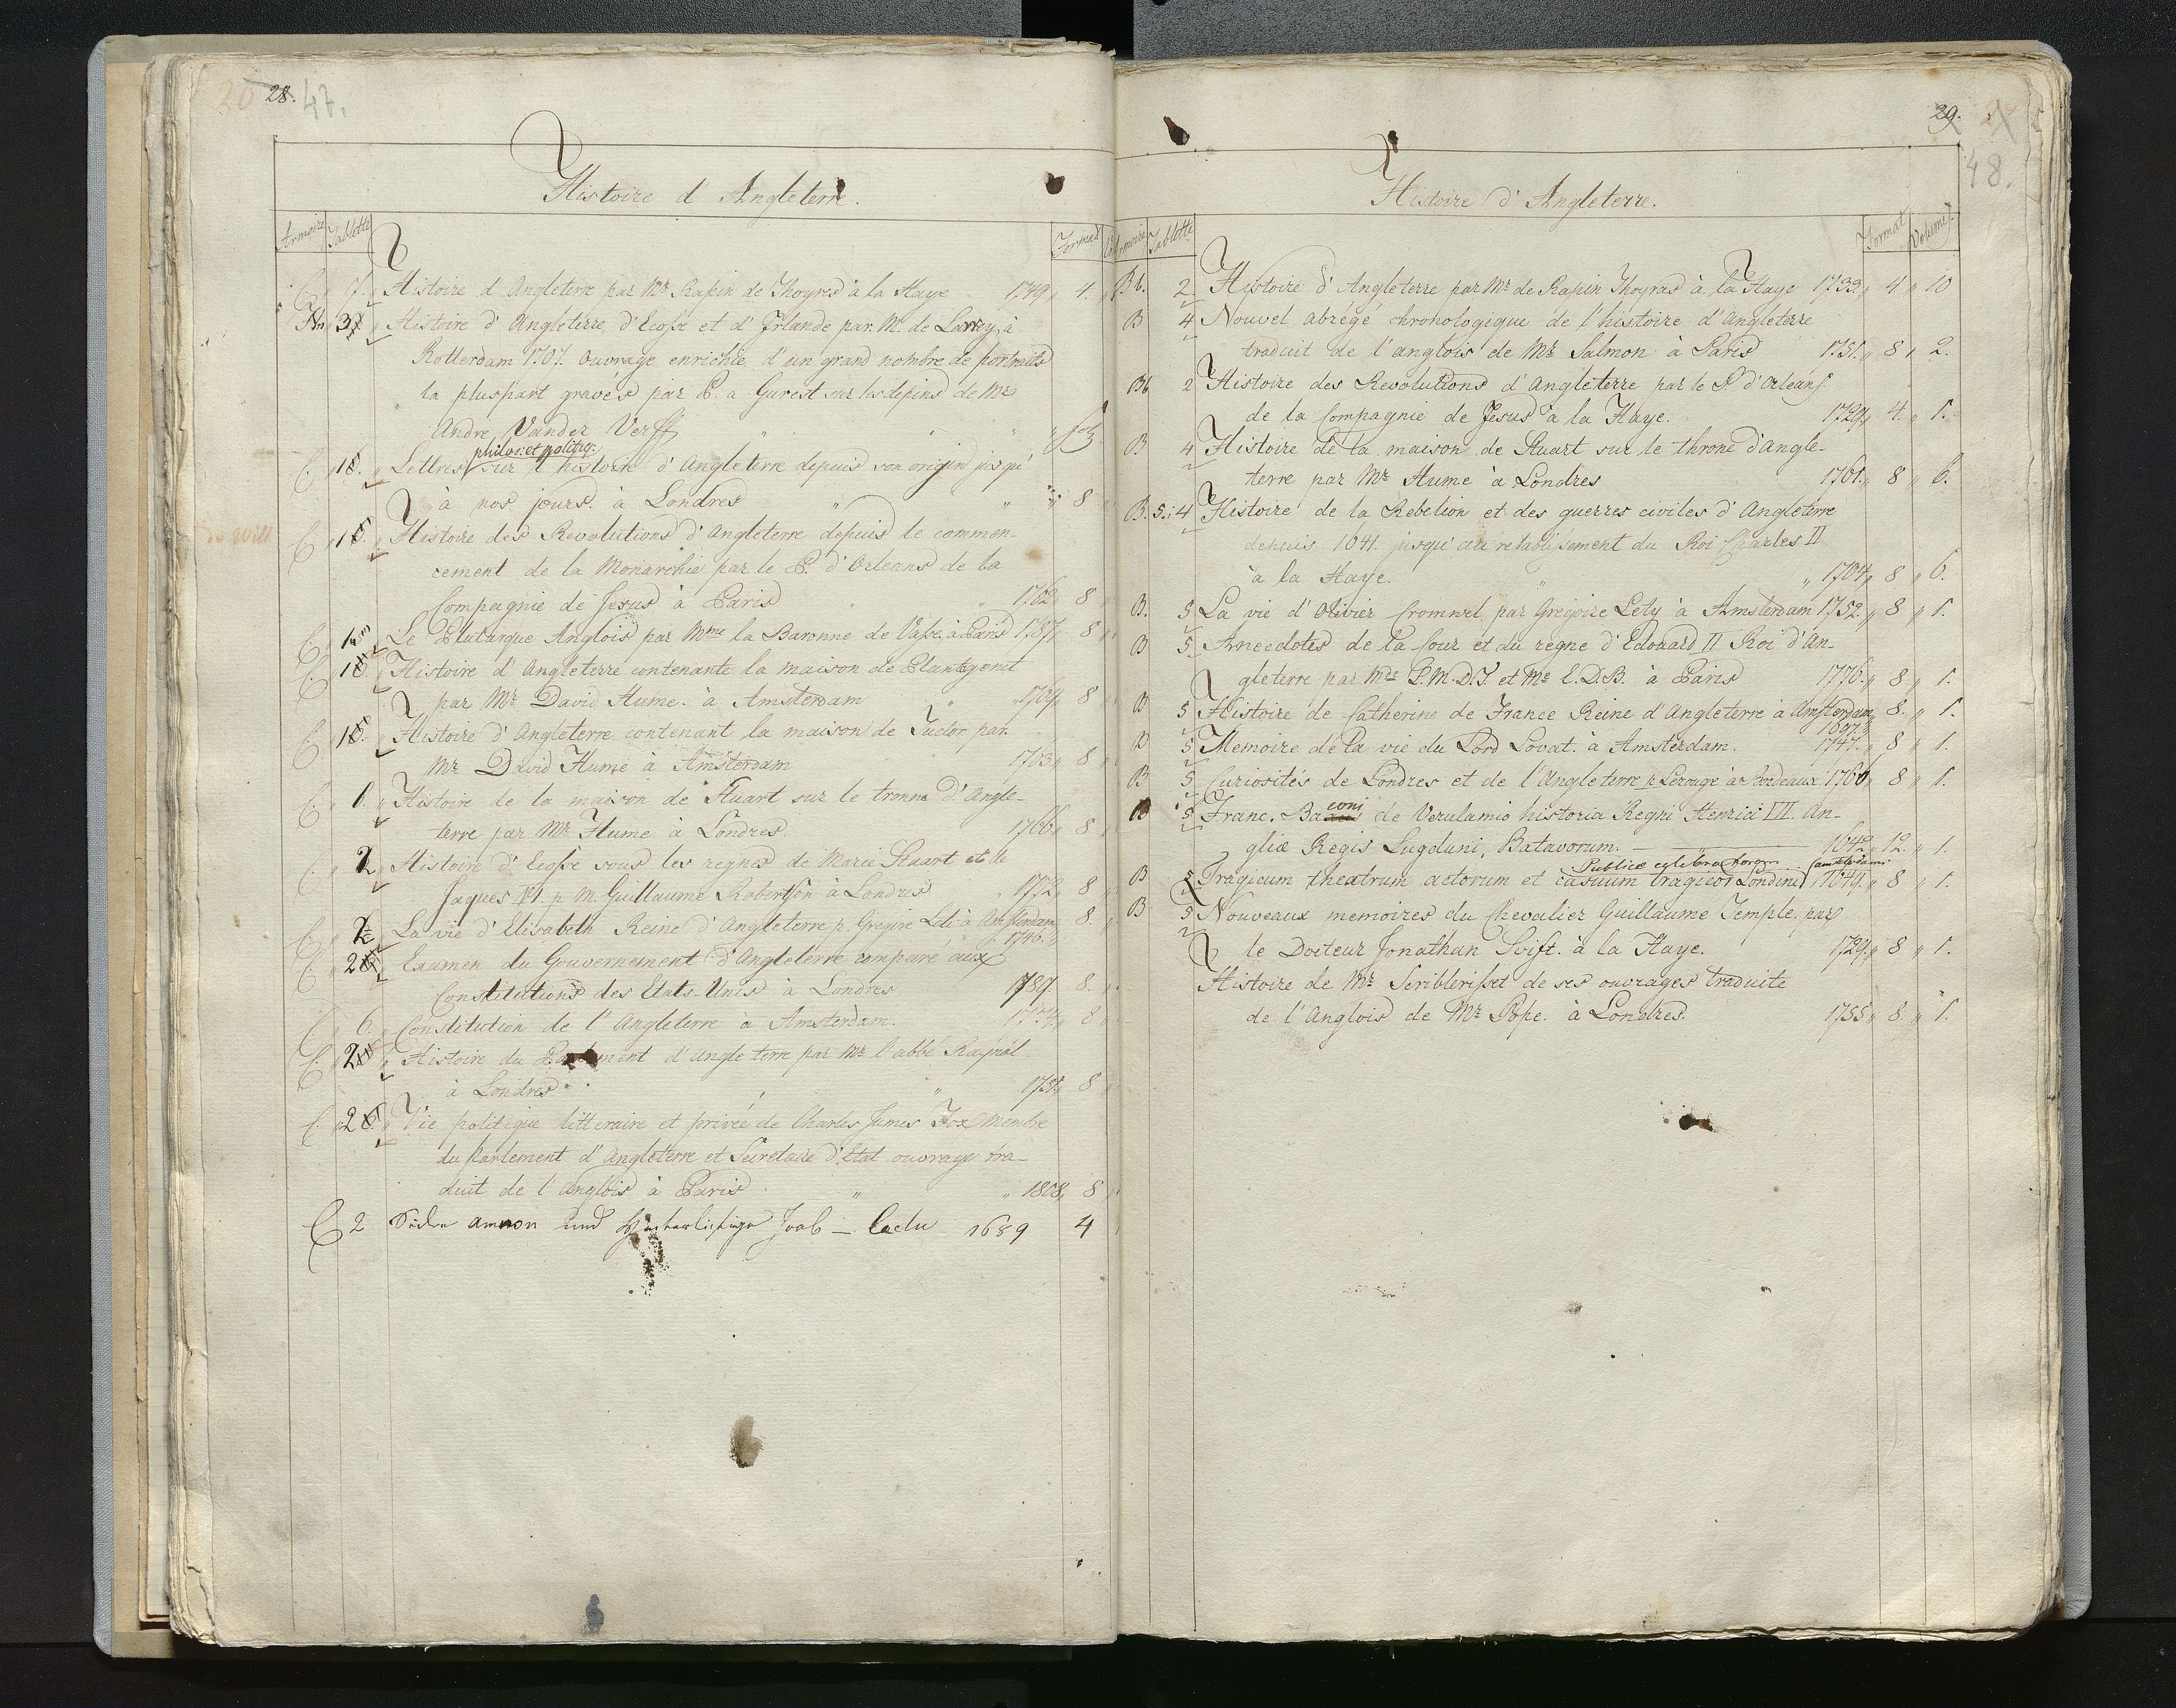 28. 47.
Histoire d'Angleterre.
Armoire Tablette Format
C. 7. Histoire d'Angleterre par Mr. Rapin de Thoyras à la Haye 1749. 4.
3 Histoire d'Angleterre, d'Ecosse et d'Irlande par M. de Larrey, à
Rotterdam 1707. ouvrage enrichie d'un grand nombre de portraits
la pluspart gravés par P. a Gunst sur les depins de Mr
Andre Vander Verff " " " fol.
philos: et politiq:
C. 1 Lettres sur l'histoire d'Angleterre depuis son origin jusqu'
à nos jours. à Londres " " " 8
C. 1 Histoire des Revolutions d'Angleterre depuis le commen-
cement de la Monarchie par le P. d'Orleans de la
Compagnie de Jesus à Paris " " 1762. 8
C. 1 Le Plutarque Anglois par Mme la Baronne de Vasse, à Paris 1787. 8
C. 1 Histoire d'Angleterre contenante la maison de Plantagenet
par Mr. David Hume. à Amsterdam " 1769. 8
C. 1 Histoire d'Angleterre contenant la maison de Tudor par
Mr David Hume à Amsterdam 1763. 8
C. 1. Histoire de la maison de Stuart sur le tronne d'Angle-
terre par Mr. Hume à Londres. 1766. 8
C. 2 Histoire d'Ecosse sous les regnes de Marie Stuart et de
Jaques VI. p. M. Guillaume Robertson à Londres " 1772. 8
C. 2 La vie d'Elisabeth Reine d'Angleterre p. Gregire Leti à Amsterdam 8.
1746.
C. 2 Examen du Gouvernement d'Angleterre comparé aux
Constitutions des Etats-Unis à Londres 1789. 8.
C. 6. Constitution de l'Angleterre à Amsterdam. 8
C. 2 Histoire du Parlement d'Angleterre par Mr l'abbé Raynal
à Londres " 1751. 8
C. 2 Vie politique litteraire et privée de Charles James Fox Membre
du Parlement d'Angleterre et Secretaire d'Etat ouvrage tra-
duit de l'Anglois à Paris " " 1808. 8
C 2 Amnon und Joab — 1689 4
29. 48.
Histoire d'Angleterre.
Armoire Tablette Format Volumes
Bb. 2 Histoire d'Angleterre par Mr. de Rapin Thoyras à la Haye 1733. 4 " 10
B 4 Nouvel abrégé chronologique de l'histoire d'Angleterre
traduit de l'anglois de Mr. Salmon à Paris 1751. 8 " 2.
Bb 2 Histoire des Revolutions d'Angleterre par le P. d'Orleans.
de la Compagnie de Jesus à la Haye. 1729. 4. " 1.
B 4 Histoire de la maison de Stuart sur le throne d'Angle-
terre par Mr. Hume à Londres 1761. 8 " 6.
B. 5: 4 Histoire de la Rebelion et des guerres civiles d'Angleterre
depuis 1641. jusqu'au retablissement du Roi Charles II
à la Haye. " " 1704. 8 " 6.
B. 5. La vie d'Olivier Cromwel par Gregoire Lety à Amsterdam 1752. 8 " 1.
B 5. Anecdotes de la Cour et du regne d'Edouard II Roi d'An-
gleterre par Mde L.M.D.T. et Me E.D.B. à Paris 1776. 8 " 1.
B 5 Histoire de Catherine de France Reine d'Angleterre à Amsterdam 8. " 1.
1697.
B 5 Memoire de la vie du Lord Lovat. à Amsterdam. 1747. " 8 " 1.
B 5 Curiosités de Londres et de l'Angleterre p. Lerouge à Bordeaux 1766. 8 " 1.
coni
B 5 Franc. Ba de Verulamio historia Regni Henrici VII. An-
gliæ Regis Lugduni, Batavorum. — 1642. 12. " 1.
Publice celebra
B 5 Tragicum theatrum actorum et casuum tragicor Londini 1649. " 8 " 1.
B 5 Nouveaux memoires du Chevalier Guillaume Temple. par
le Docteur Jonathan Svift. à la Haye. 1729. " 8 " 1.
Histoire de Mr. Scribleris et de ses ouvrages traduite
de l'Anglois de Mr. Pope. à Londres. 1755. " 8. " 1.